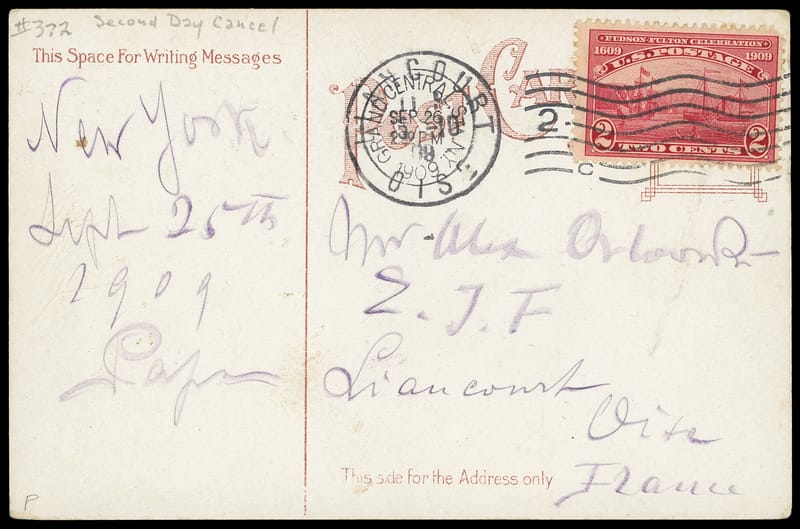 #372 Second Day Cancel
This Space For Writing Messages
New York
Sept 25th
1909
Papa
HUDSON-FULTON CELEBRATION
1609 1909
U.S. POSTAGE
2 TWO CENTS 2
LIANCOURT
OISE
GRAND CENTRAL
SEP 26
N.Y.
1909
2
C
Mr Alex
E. J. F
Liancourt
Oise
This side for the Address only
France
P